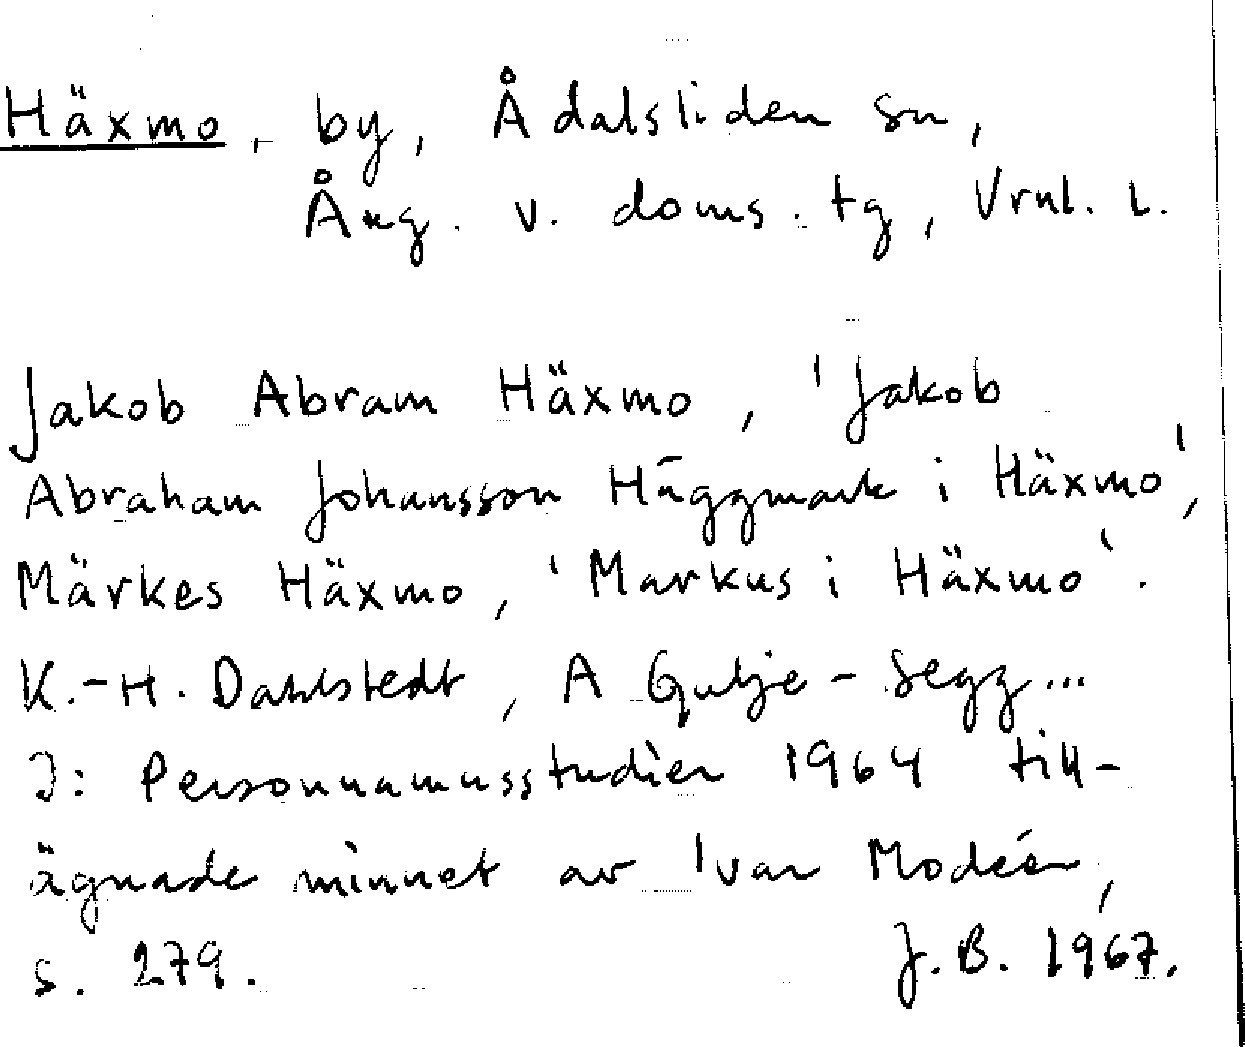 Häxmo, by, Ådalsliden sn,
Ång. v. doms. tg, Vrnl. l.
Jakob Abram Häxmo, 'Jakob
Abraham Johansson Häggmark i Häxmo',
Märkes Häxmo, 'Markus i Häxmo'.
K.-H. Dahlstedt, A Gulje-Segg...
I: Personnamnsstudier 1964 till-
ägnade minnet av Ivar Modéer,
s. 279. J.B. 1967.